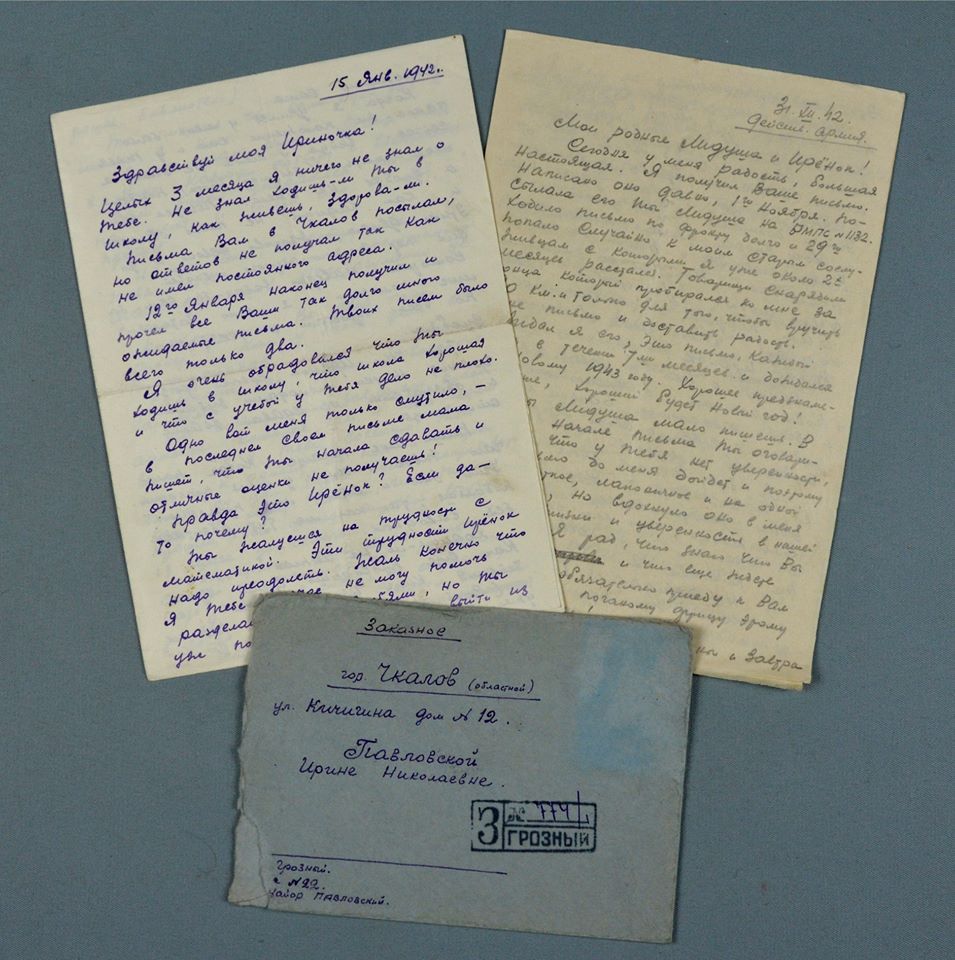 15 Янв. 1942г.
Здравствуй моя Ириночка!
Целых 3 месяца я ничего не знал о
тебе. Не знал ходишь-ли ты в
школу, как живёшь, здорова-ли.
Письма Вам в Чкалов посылал,
но ответов не получал так как
не имел постоянного адреса.
12го января наконец получил и
прочел все Ваши так долго много
ожидаемые письма. Твоих писем было
всего только два.
Я очень обрадовался что ты
ходишь в школу, что школа хорошая
и что с учебой у тебя дело не плохо.
Одно вот меня только смутило, –
в последнем своем письме мама
пишет, что ты начала сдавать и
отличные оценки не получаешь!
Правда это Ирёнок? Если да–
то почему?
Ты жалуешся на трудности с
математикой. Эти трудности Ирёнок
надо преодолеть. Жаль конечно что
я тебе не могу помочь
но ты
выйти из
31.XII.42.
Действ. армия.
Мои родные Лидуша и Ирёнок!
Сегодня у меня радость, большая
настоящая. Я получил Ваше письмо.
Написано оно давно, 1го ноября. По-
сылала его ты Лидуша на ППС №1132.
Ходило письмо по фронту долго и 29го
попало случайно к моим старым сослу-
живцам с которыми я уже около 2х
месяцев расстался. Товарищи снарядили
который пробирался ко мне за
км. и только для того, чтобы вручить
письмо и доставить радость.
я его, это письмо, каждый
в течении 3х месяцев и дождался
новому 1943 году. Хорошее предзнаме-
хороший будет Новый год!
Лидуша мало пишешь. В
начале письма ты оговари-
что у тебя нет уверенности,
до меня дойдет и поэтому
лаконичное и на одной
но вдохнуло оно в меня
жизни и уверенность в нашей
Я рад, что знаю что Вы
и что еще
обязательно приеду к Вам
поганому фрицу
и завтра
Заказное
гор. Чкалов (областной)
ул. Кичигина дом №12.
Павловской
Ирине Николаевне.
З
№ 774
ГРОЗНЫЙ
Грозный.
№22
майор Павловский.